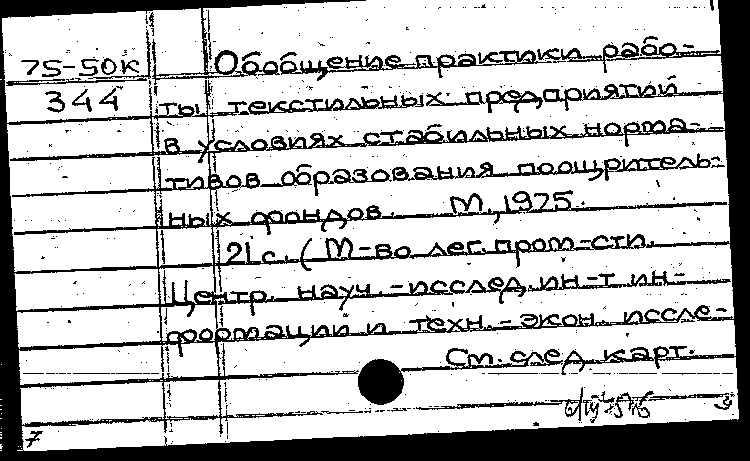 75-50к Обобщение практики рабо-
344 ты текстильных предприятий
в условиях стабильных норма-
тивов образования поощритель-
ных фондов. М., 1975.
21 с. (М-во лег. пром-сти.
Центр. науч.-исслед. ин-т ин-
формации и техн.-экон. иссле-
См. след. карт.
7